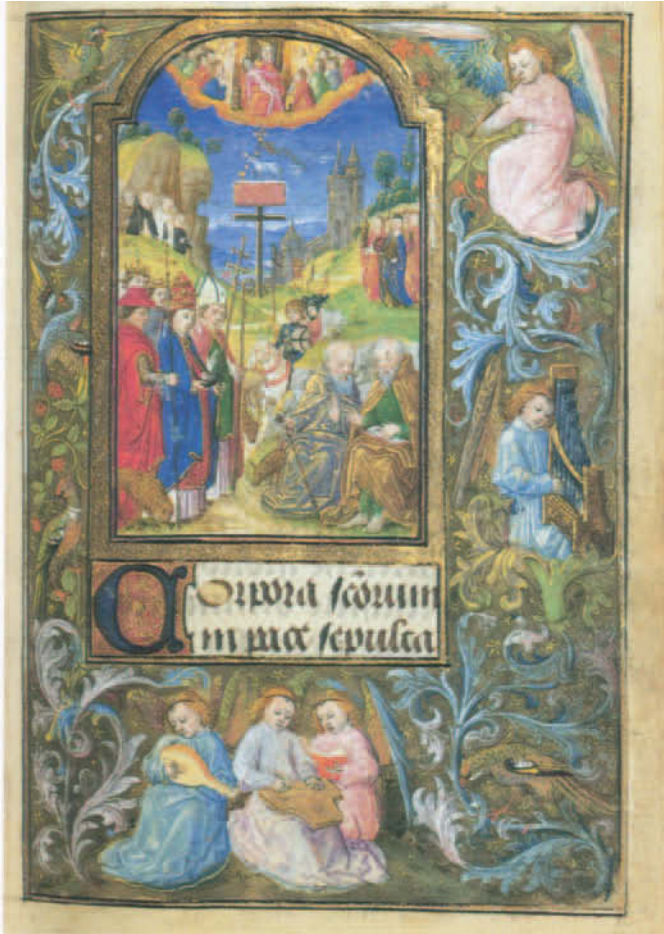 Corpora sc̄orum
in pace sepulta